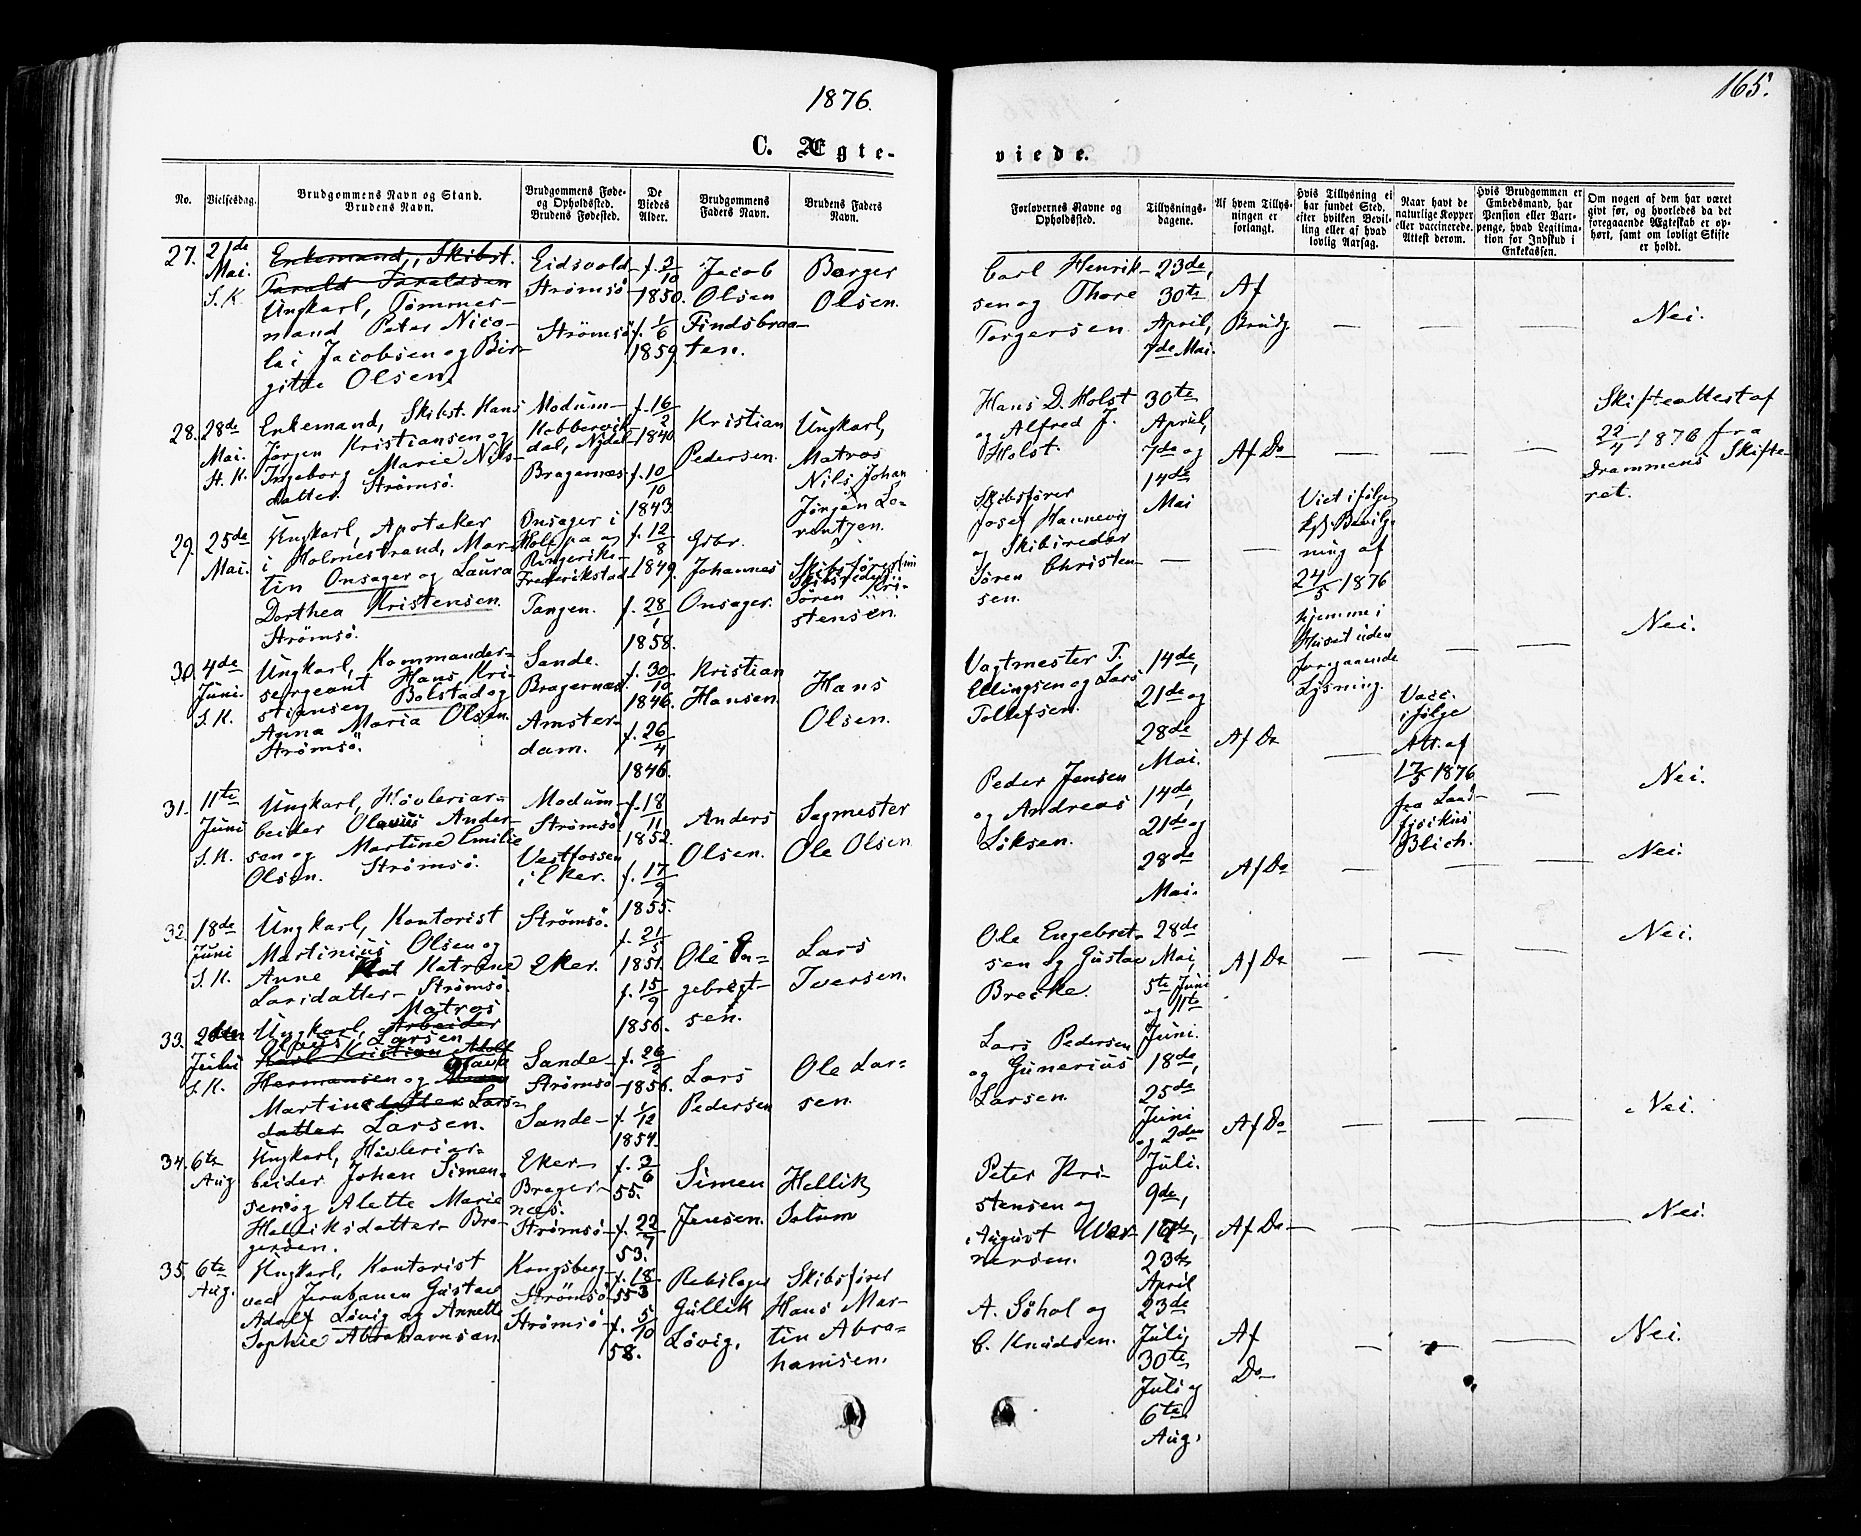 1876.
165.
C. Ægte-
viede.
No.
Vielsesdag.
Brudgommens Navn og Stand.
Brudens Navn.
Brudgommens Føde-
og Opholdssted.
Brudens Fødested.
De
Viedes
Alder.
Brudgommens
Faders Navn.
Brudens Faders
Navn.
Forlovernes Navne og
Opholdssted.
Tillysnings-
dagene.
Af hvem Tillys-
ningen er
forlangt.
Hvis Tillysning ei
har fundet Sted,
efter hvilken Bevil-
ling eller af hvad
lovlig Aarsag.
Naar havt de
naturlige Kopper
eller vaccinerede.
Attest derom.
Hvis Brudgommen er
Embedsmand, har
Pension eller Vart-
penge, hvad Legitima-
tion for Indskud i
Enkekassen.
Om nogen af dem har været
givt før, og hvorledes da det
foregaaende Ægteskab er op-
hørt, samt om lovligt Skifte
er holdt.
27.
21de
Mai.
S. K.
Enkemand, Skibst.
Tarald Taraldsen
Ungkarl, Tømmer-
mand Peter Nico-
lai Jacobsen og Bir-
gitte Olsen.
Eidsvold-
Strømsø
Strømsø
f. 3/10
1850.
f. 1/6
1859.
Jacob
Olsen
Findsbraa-
ten.
Borger
Olsen.
Carl Henrik-
sen og Thore
Torgersen.
23de,
30te
April,
7de Mai.
Af
Brudg.
— — —
Nei.
28.
28de
Mai.
St. K.
Enkemand, Skibst. Hans
Jørgen Kristiansen og
Ingeborg Marie Nils-
datter. Strømsø.
Modum-
Kobbervik-
dal,
Bragernæs
f. 16/2
1840
f. 10/10
1843
Kristian
Pedersen.
Ungkarl,
Matros
Nils Johan
Jørgen Lo-
rentzen.
Hans D. Holst
og Alfred J.
Holst.
30te
April,
7de og
14de
Mai
Af Do
— — —
Skifteattest af
22/4 1876 fra
Drammens Skifte-
ret.
29.
25de
Mai.
Ungkarl, Apoteker
i Holmestrand, Mar-
tin Onsager og Laura
Dorthea Kristensen.
Strømsø.
Onsager i
Hole pa og
Ringerike-
Frederikstad
Tangen.
f. 12/8
1849.
f. 28/1
1858.
Gbr.
Johannes
Onsager.
Skibsfører
Skibsreder
Søren Kri-
stensen.
Skibsfører
Josef Hannevig
og Skibsreder
Søren Christen-
sen.
—
—
Viet ifølge
kgl. Bevilg-
ning af
24/5 1876
hjemme i
Huset uden
foregaaende
Lysning.
— —
Nei.
30.
4de
Juni.
S. K.
Ungkarl, Kommander-
sergeant Hans Kri-
stiansen Bolstad og
Anna Maria Olsen.
Strømsø.
Sande.
Bragernæs
Amster-
dam.
f. 30/10
1846.
f. 26/4
1846.
Kristian
Hansen.
Hans
Olsen.
Vagtmester T.
Ellingsen og Lars
Tollefsen.
14de,
21de og
28de
Mai.
Af Do
—
Vacc.
ifølge
Att. af
17/5 1876
fra Land-
fysikus
Blich.
—
Nei.
31.
11te
Juni
S. K.
Ungkarl, Høvleriar-
beider Olavus Ander-
sen og Martine Emilie
Olsen. Strømsø.
Modum-
Strømsø
Vestfossen
i Eker.
f. 18/11
1852.
f. 17/9
1855.
Anders
Olsen.
Sagmester
Ole Olsen
Peder Jensen
og Andreas
Løksen.
14de,
21de og
28de
Mai.
Af Do
— — —
Nei.
32.
18de
Juni
S. K.
Ungkarl, Kontorist
Martinius Olsen og
Anne Kat Katrine
Larsdatter- Strømsø.
Strømsø.
Eker.
f. 21/5
1851.
f. 15/9
1856.
Ole En-
gebrigt-
sen.
Lars
Iversen.
Ole Engebret-
sen og Gustav
Brecke.
28de
Mai,
5te Juni
og 11te
Juni.
Af Do
— — —
Nei.
33.
2den
Juli
S. K.
Matros
Ungkarl, Arbeider
Larsen
Karl Kristian Adolf
Olava
Hermansen og Maren
Martine datter Lars-
datter Larsen.
Sande-
Strømsø
Sande-
f. 26/2
1856.
f. 1/12
1854.
Lars
Pedersen
Ole Lar-
sen.
Lars Pedersen
og Gunerius
Larsen.
18de,
25de
Juni
og 2den
Juli.
Af Do
— — —
Nei.
34.
6te
Aug
Ungkarl, Høvleriar-
beider Johan Simen-
sen og Alette Marie
Helliksdatter- Bra-
gersen.
Eker-
Brager-
næs.
Strømsø-
f. 3/6
55.
f. 22/7
53.
Simen
Jensen.
Hellik
Solum
Peter Kri-
stensen og
August Wer-
nersen.
9de,
16de,
23de
April
Af Do
— — —
Nei.
35.
6te
Aug.
Ungkarl, Kontorist
ved Jernbanen Gustav
Adolf Løvig og Annette
Sophie Abrahamsen.
Kongsberg-
Strømsø
Strømsø-
f. 18/3
55
f. 5/10
58.
Gullik
Løvig.
Skibsfører
Hans Mar-
tin Abra-
hamsen.
A. Søhol og
C. Knudsen.
23de
Juli,
30te
Juli og
6te
Aug.
Af
Do
— — —
Nei.